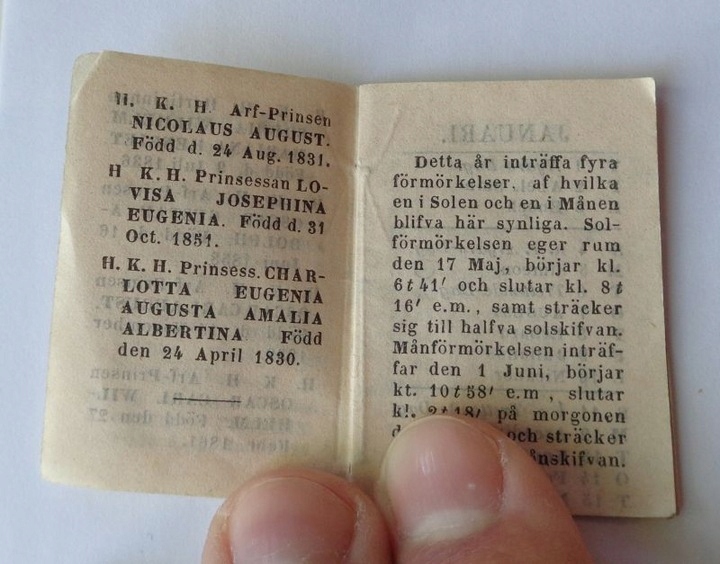 H. K. H. Arf-Prinsen
NICOLAUS AUGUST.
Född d. 24 Aug. 1831.
H K. H. Prinsessan LO-
VISA JOSEPHINA
EUGENIA. Född d. 31
Oct. 1851.
H. K. H. Prinsess. CHAR-
LOTTA EUGENIA
AUGUSTA AMALIA
ALBERTINA Född
den 24 April 1830.
Detta år inträffa fyra
förmörkelser, af hvilka
en i Solen och en i Månen
blifva här synliga. Sol-
förmörkelsen eger rum
den 17 Maj, börjar kl.
6t41' och slutar kl. 8t
16' e.m., samt sträcker
sig till halfva solskifvan.
Månförmörkelsen inträf-
far den 1 Juni, börjar
kt. 10t58' e.m, slutar
kl. 2t18' på morgonen
och sträcker
ånskifvan.